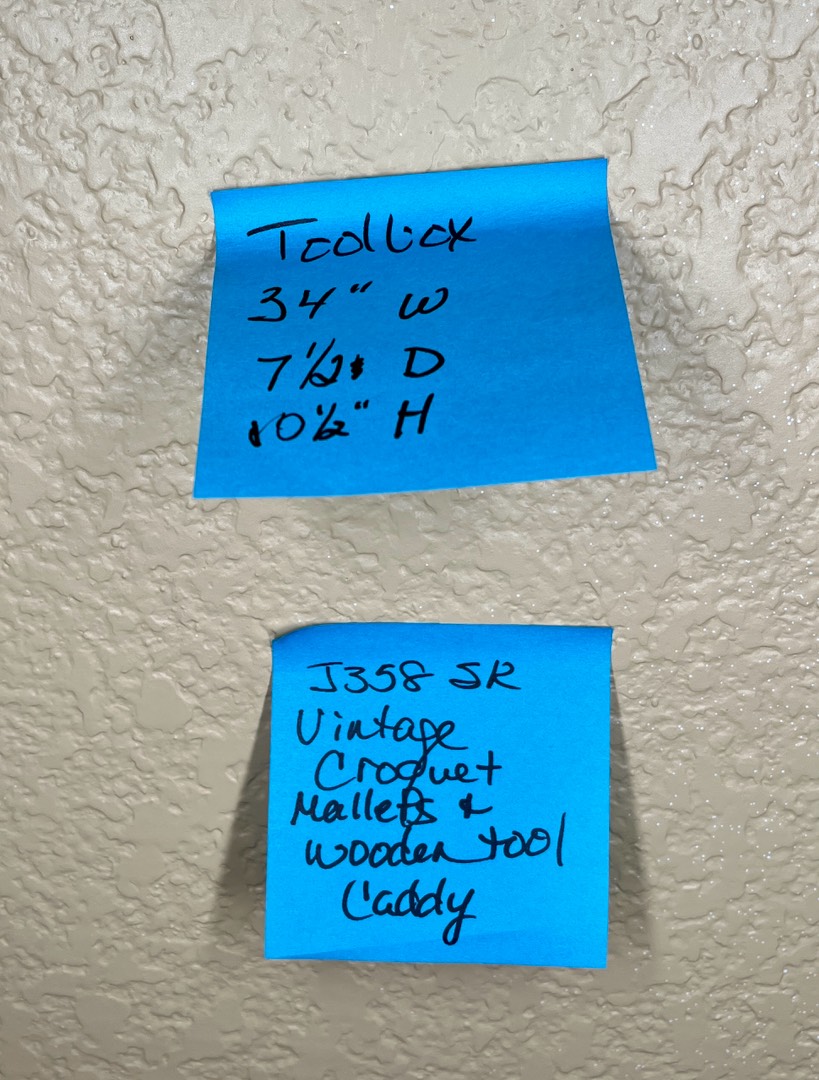 Toolbox
34" W
7 1/2" D
10 1/2" H
J358 SR
Vintage
Croquet
Mallets &
wooden tool
Caddy